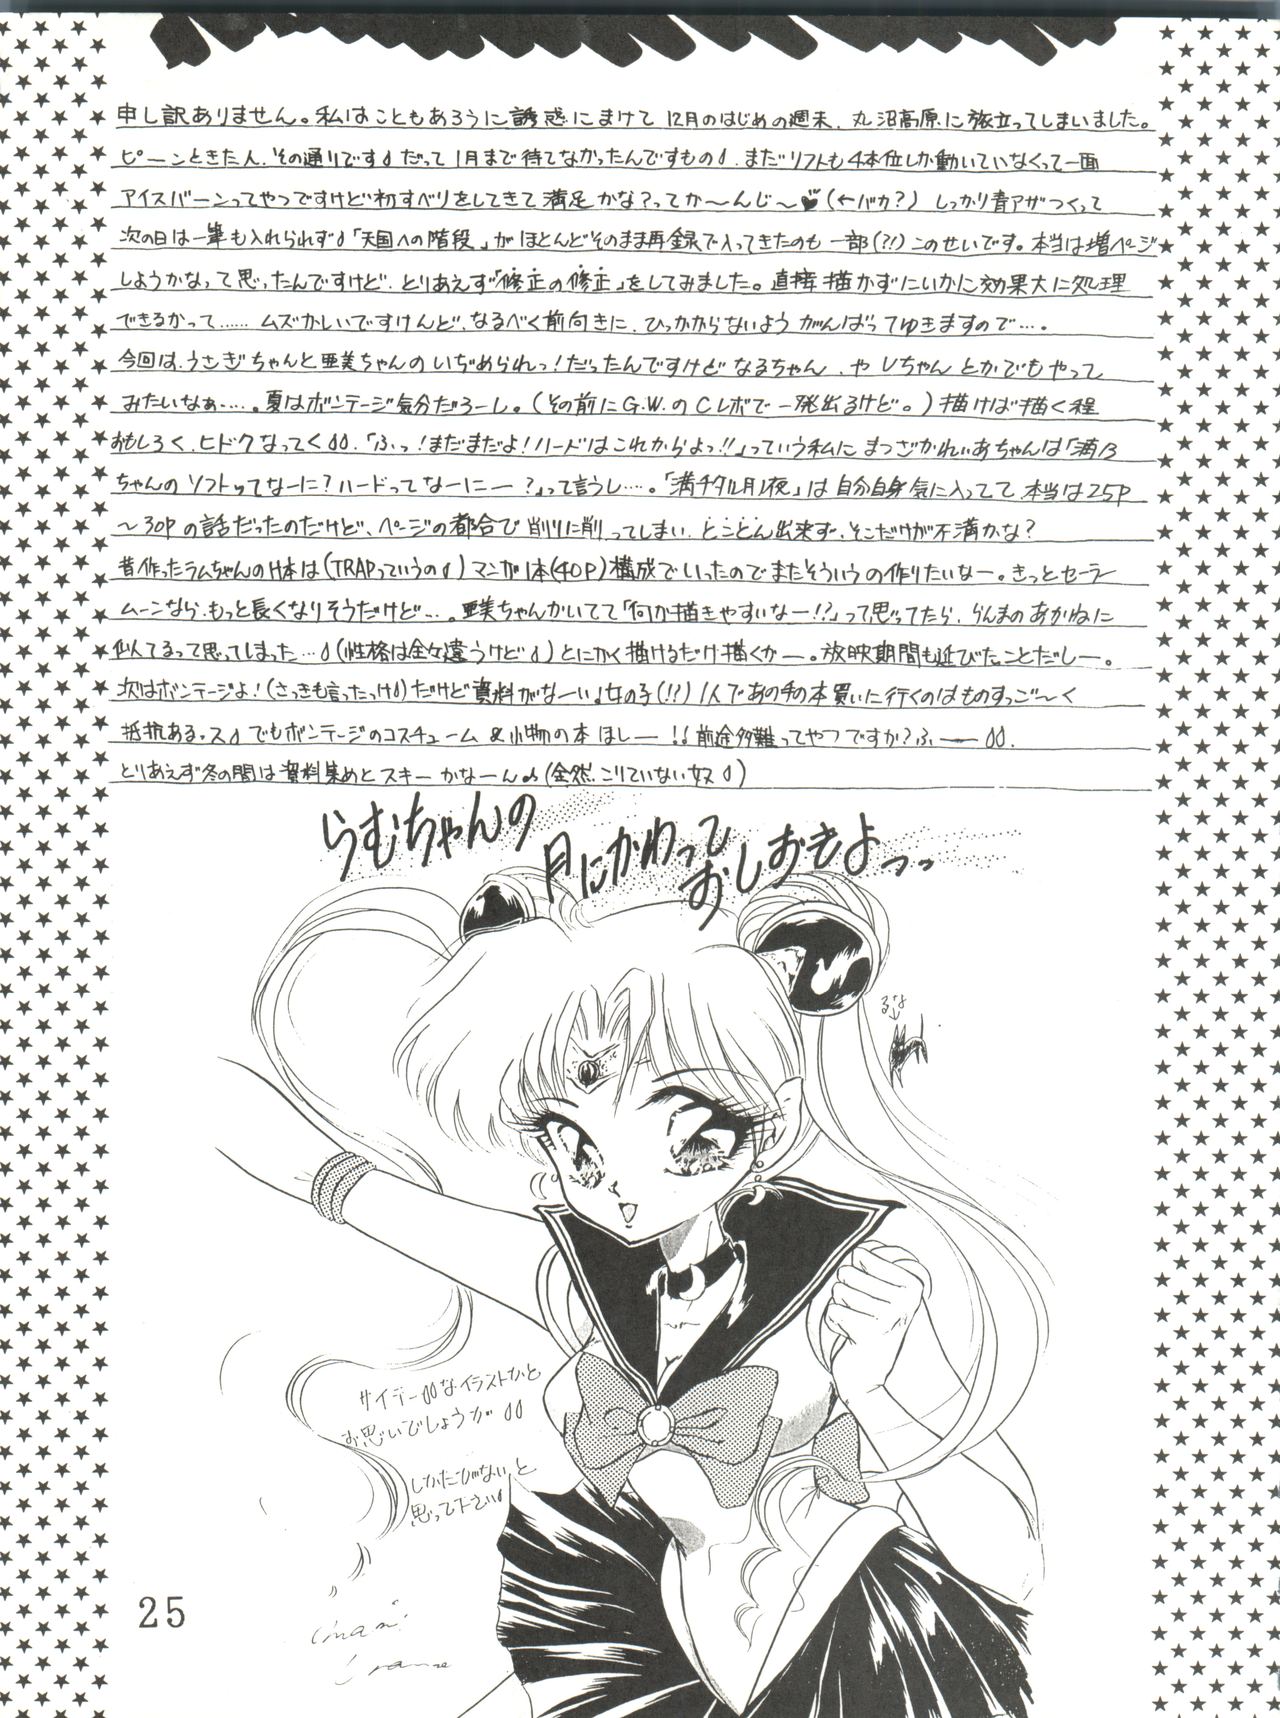 申し訳ありません。私はこともあろうに誘惑にまけて12月のはじめの週末、丸沼高原に旅立ってしまいました。
ピーンときた人、その通りです。だって1月まで待てなかったんですもの。まだリフトも4本位しか動いていなくって一面
アイスバーンってやつですけど初すべりをしてきて満足かな?ってか〜んじ〜♥(←バカ?) しっかり青アザつくって
次の日は一筆も入れられず「天国への階段」がほとんどそのまま再録で入ってきたのも一部(?!)このせいです。本当は増ページ
しようかなって思ったんですけど、とりあえず「修正の修正」をしてみました。直接描かずにいかに効果大に処理
できるかって……ムズかしいですけんど、なるべく前向きに、ひっかからないようがんばってゆきますので…。
今回は、うさぎちゃんと亜美ちゃんのいぢめられっ!だったんですけどなるちゃん、やVちゃんとかでもやって
みたいなぁ…。夏はボンテージ気分だろーし。(その前にG.W.のCレボで一発出るけど。)描けば描く程
おもしろく、ヒドクなってく。「ふっ!まだまだよ!ハードはこれからよっ!!」っていう私にまつざかれいあちゃんは「満乃
ちゃんのソフトってなーに?ハードってなーにー?」って言うし…。「満チタル月夜」は自分自身気に入ってて、本当は25P
〜30Pの話だったのだけど、ページの都合で削りに削ってしまい、とことん出来ず、そこだけが不満かな?
昔作ったラムちゃんのH本は(TRAPっていうの)マンガ1本(40P)構成でいったのでまたそういうの作りたいなー。きっとセーラー
ムーンなら、もっと長くなりそうだけど…。亜美ちゃんかいてて「何か描きやすいなー!?」って思ってたら、らんまのあかねに
似てるって思ってしまった…(性格は全々違うけど)とにかく描けるだけ描くかー。放映期間も延びたことだしー。
次はボンテージよ!(さっきも言ったっけ)だけど資料がなーい。女の子(!?)1人であの手の本買いに行くのはものすっご〜く
抵抗あるっス。でもボンテージのコスチューム&小物の本ほしー!!前途多難ってやつですか?ふー。
とりあえず冬の間は資料集めとスキーかなーん♪(全然、こりていない奴ス)
らむちゃんの
月にかわって
おしおきよっっ
るな
↓
サイテーなイラストだと
お思いでしょうが
しかたがないと
思って下さい
25